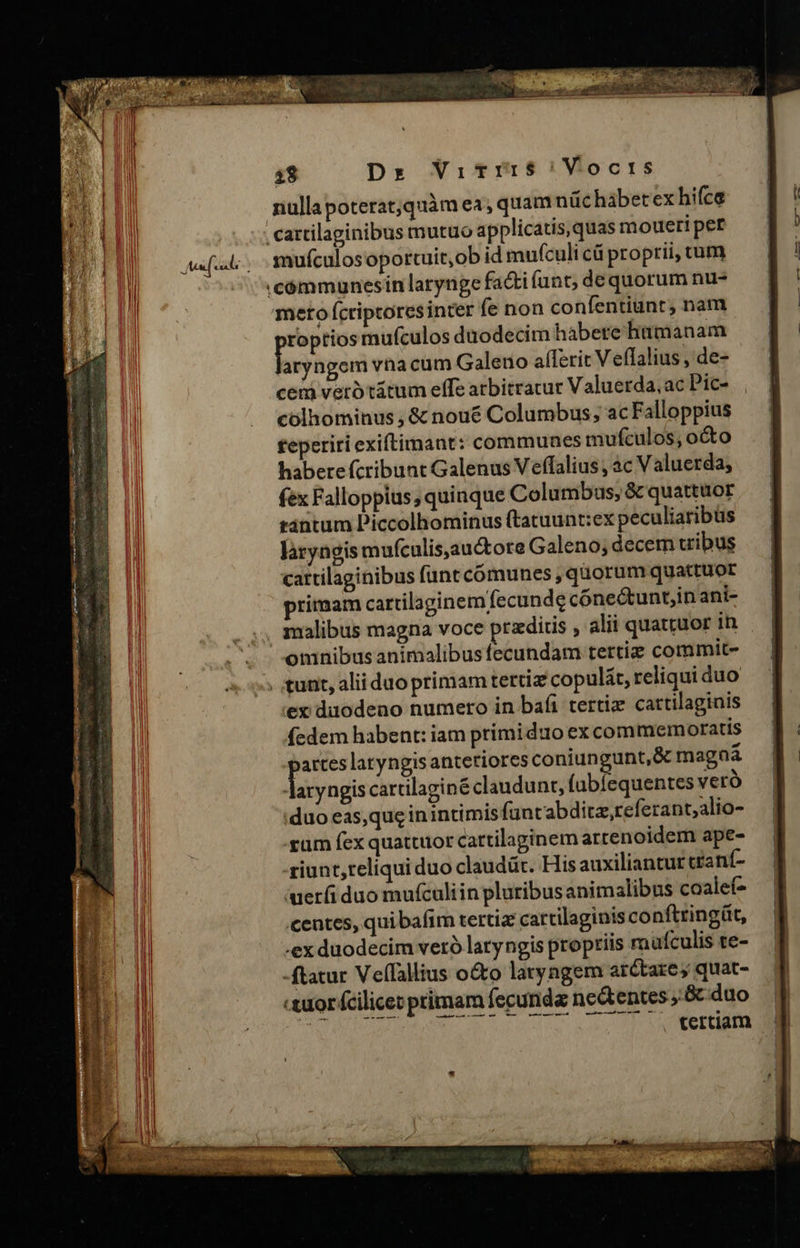 18 De Vitiis Vocis
nulla poterat, quàm ea, quam nũc habet ex hiſce
cartilaginibus mutuo applicatis, quas moueri per
muſculos oportuit, ob id muſculi cũ proprii, tum
communes in larynge facti ſunt, de quorum nu-
mero ſcriptores inter ſe non conſentiunt, nam
proprios muſculos duodecim habere humanam
laryngem vna cum Galeno aſſerit Veſſalius, de-
cem verò tãtum eſſe arbitratur Valuerda, ac Pic-
colhominus, & nouẽ Columbus, ac Falloppius
reperiri exiſtimant: communes muſculos, octo
habere ſcribunt Galenus Veſſalius, ac Valuerda,
ſex Falloppius, quinque Columbus, & quattuor
tantum Piccolhominus ſtatuunt: ex peculiaribus
laryngis muſculis, auctore Galeno, decem tribus
cartilaginibus ſunt cõmunes, quorum quattuor
primam cartilaginem ſecundę cõnectunt, in ani-
malibus magna voce præditis, alii quattuor in
omnibus animalibus ſecundam tertiæ commit-
tunt, alii duo primam tertiæ copulãt, reliqui duo
ex duodeno numero in baſi tertiæ cartilaginis
ſedem habent: iam primi duo ex commemoratis
partes laryngis anteriores coniungunt, & magnã
laryngis cartilaginẽ claudunt, ſubſequentes verò
duo eas, quę in intimis ſunt abditæ, referant, alio-
rum ſex quattuor cartilaginem arytenoidem ape-
riunt, reliqui duo claudũt. His auxiliantur tranſ-
uerſi duo muſculi in pluribus animalibus coaleſ-
centes, qui baſim tertiæ cartilaginis conſtringũt,
ex duodecim verò laryngis propriis muſculis te-
ſtatur Veſſallius octo laryngem arctare, quat-
tuor ſcilicet primam ſecundæ nectentes, & duo
tertiam